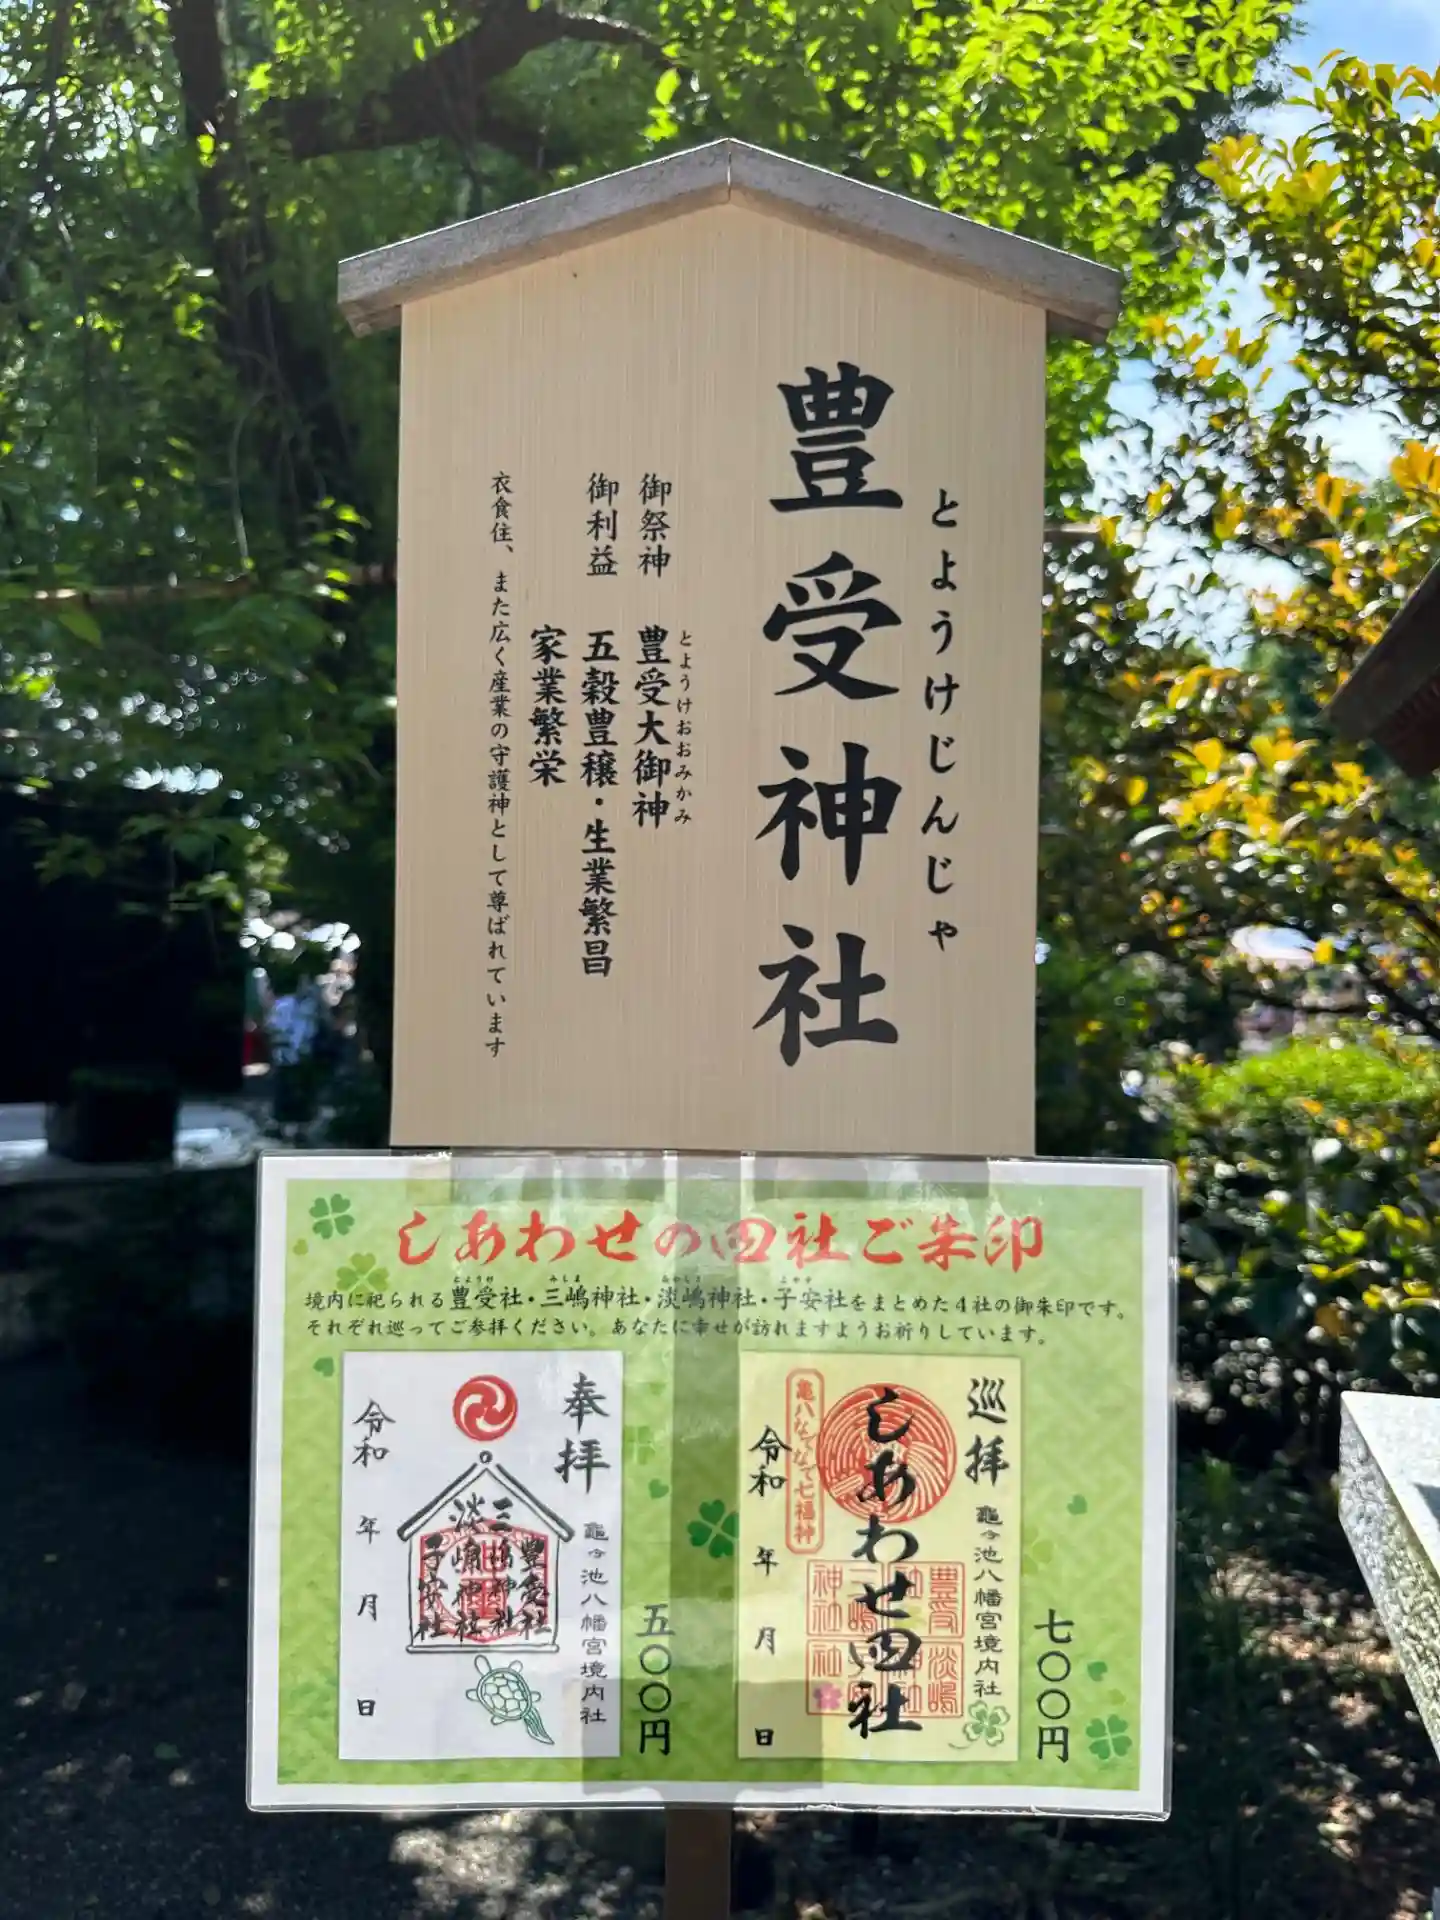 とようけじんじゃ
豊受神社
とようけおおみかみ
御祭神　豊受大御神
御利益　五穀豊穣・生業繁昌
家業繁栄
衣食住、また広く産業の守護神として尊ばれています
しあわせの四社ご朱印
とようけ　みしま　あわしま　こやす
境内に祀られる豊受社・三嶋神社・淡嶋神社・子安社をまとめた4社の御朱印です。
それぞれ巡ってご参拝ください。あなたに幸せが訪れますようお祈りしています。
奉拝
亀ヶ池八幡宮境内社
豊受社
三嶋神社
淡嶋神社
子安社
令和　年　月　日
五〇〇円
巡拝
亀ヶ池八幡宮境内社
しあわせ四社
亀八なでなで七福神
豊受
神社
三嶋
神社
淡嶋
神社
令和　年　月　日
七〇〇円